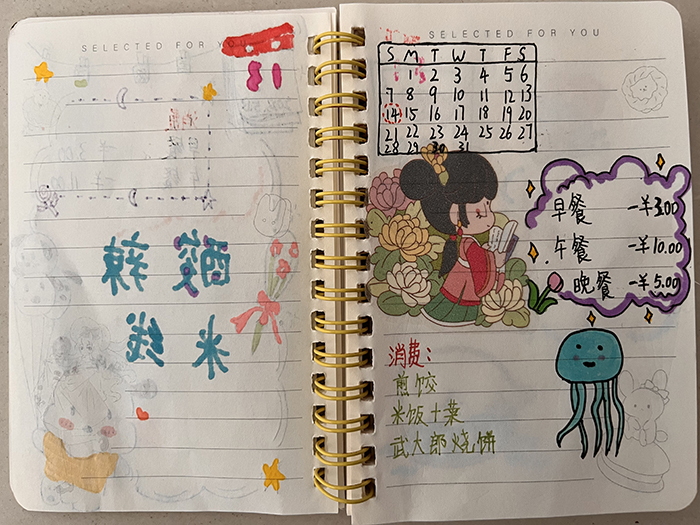 SELECTED FOR YOU
酸辣
米线
SELECTED FOR YOU
S M T W T F S
1 2 3 4 5 6
7 8 9 10 11 12 13
14 15 16 17 18 19 20
21 22 23 24 25 26 27
28 29 30 31
早餐 -¥3.00
午餐 -¥10.00
晚餐 -¥5.00
消费:
煎饺
米饭+菜
武大郎烧饼